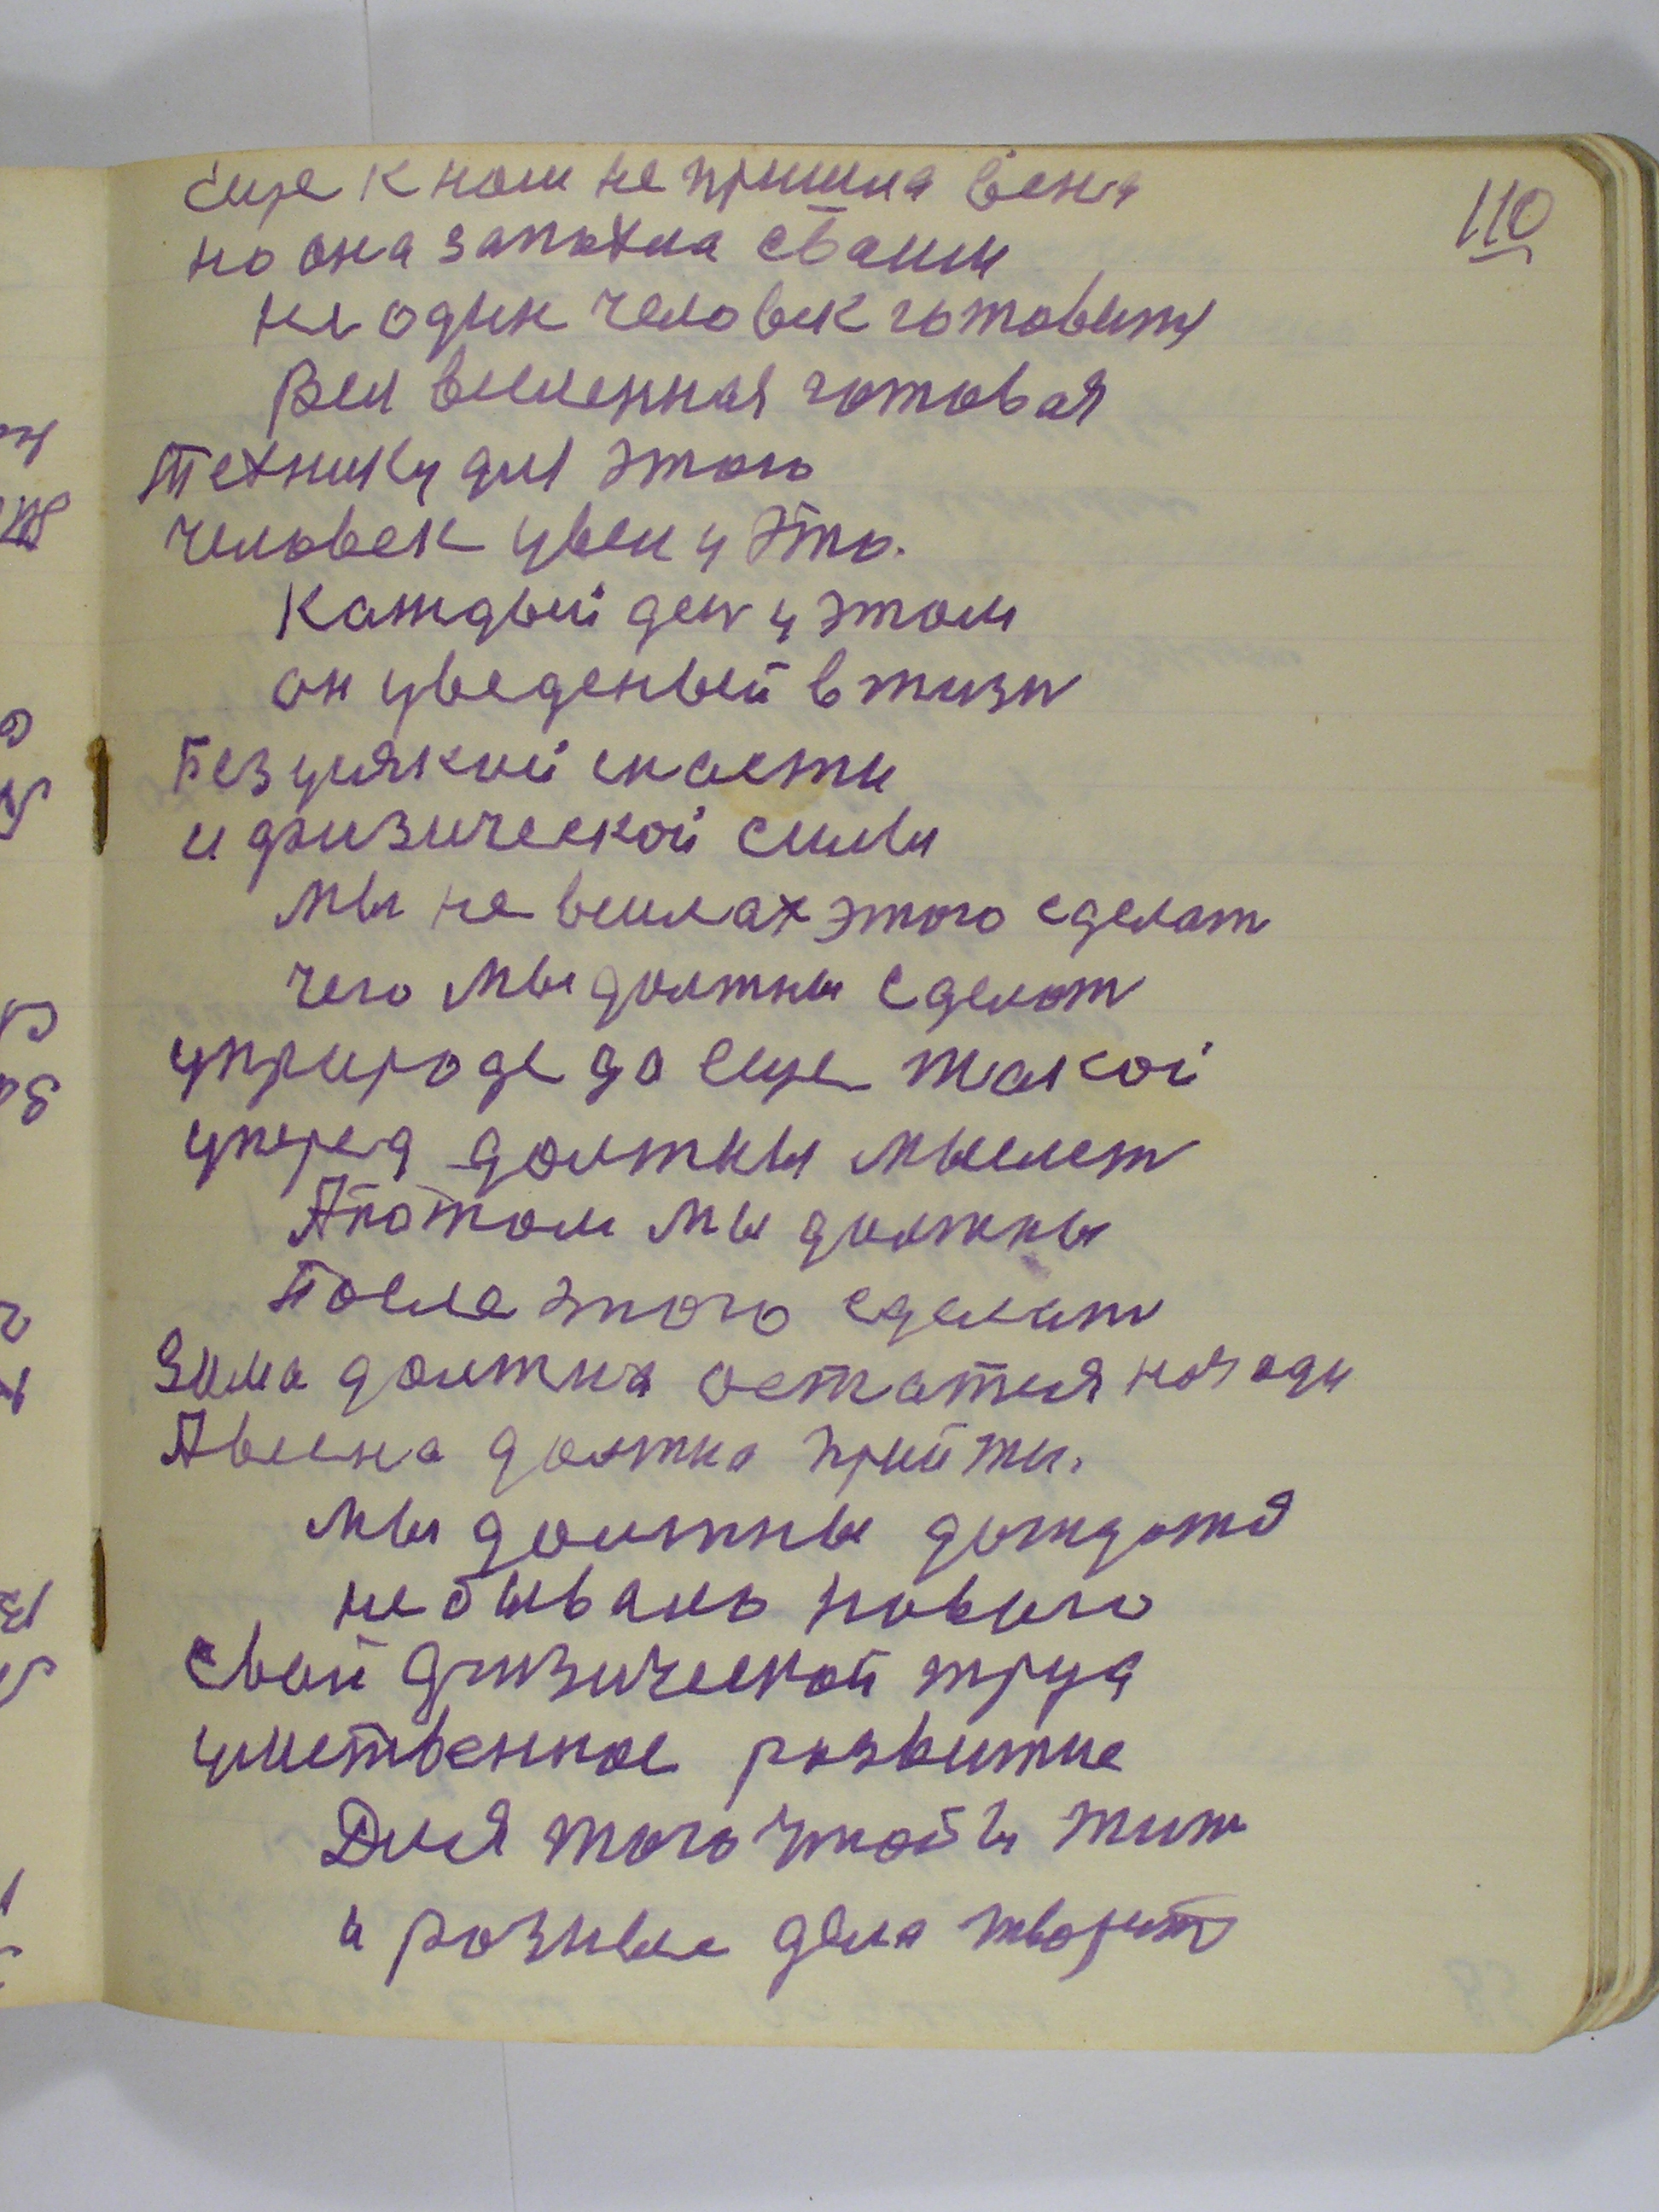 110
еще к нам не пришла весна
но она запахла своим
не один человек готовится
Вся вселенная готовая
Технику для этого
человек увел у это.
Каждый ден у этом
он уведеный в жизн
Без усякой снасти
и физической силы
мы не всилах этого сделат
чего мы должны сделат
уприроде да еще такой
уперед должны мыслет
Апотом мы должны
После этого сделат
Зима должна остатся позади
Авесна должна прийти.
мы должны дождатся
не бывало нового
свой физической труд
умственное развитие
Для того чтобы жит
и разные дела творит